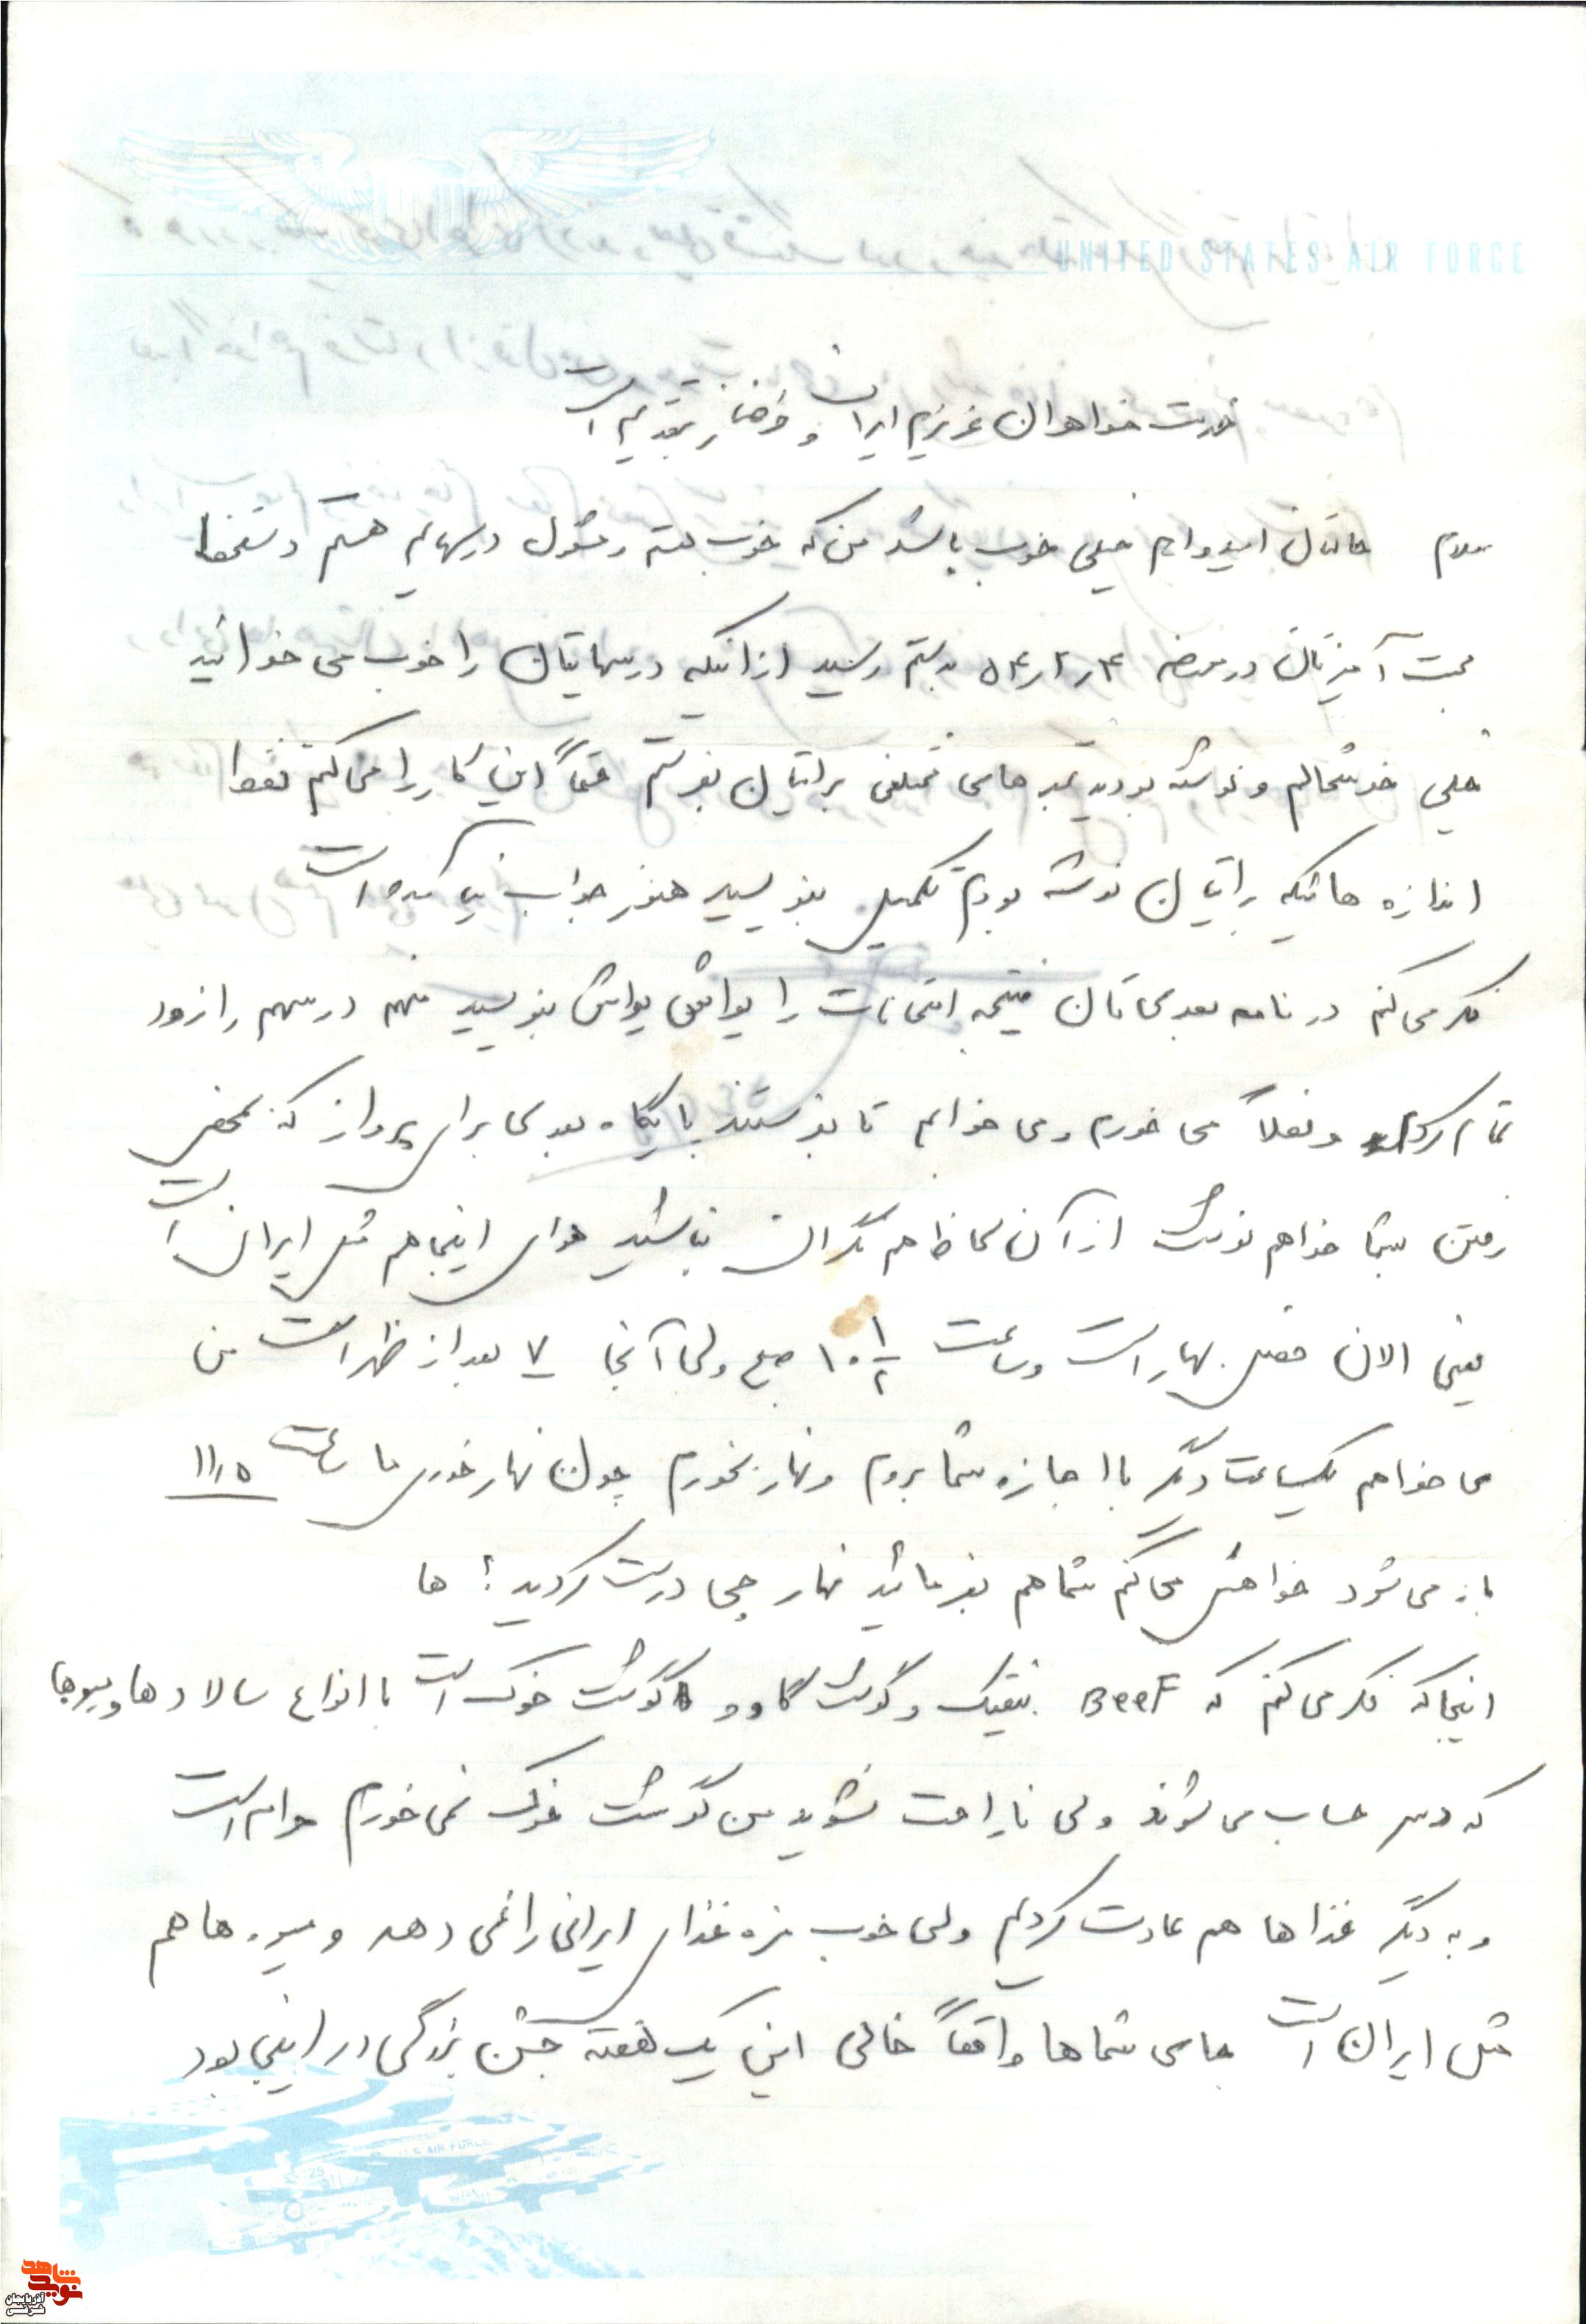 UNITED STATES AIR FORCE
خدمت خواهران عزیزم ایران و فرحناز تقدیم است
سلام حالتان امیدوارم خیلی خوب باشد من که خوب هستم و مشغول درسهایم هستم دستخط
محبت آمیزتان در مورخه ۵۴/۲/۴ بدستم رسید از اینکه درسهایتان را خوب می خوانید
خیلی خوشحالم و نوشته بودید تمبر های مختلفی برایتان بفرستم حتماً این کار را می کنم فقط
اندازه هائیکه برایتان نوشته بودم تکمیل بنویسید هنوز جواب نیامده است
فکر می کنم در نامه بعدی تان نتیجه امتحانات را یواش یواش بنویسید منهم درسهم را زود
تمام کردم و فعلاً می خورم و می خوابم تا بفرستند پایگاه بعدی برای پرواز که بمحض
رفتن بشما خواهم نوشت از آن لحاظ هم نگران نباشید هوای اینجا هم مثل ایران است
یعنی الان فصل بهار است و ساعت ۱۰ ۱/۲ صبح ولی آنجا ۷ بعد از ظهر است من
می خواهم یکساعت دیگر با اجازه شما بروم و نهار بخورم چون نهار خوری ما ساعت ۱۱/۵
باز می شود خواهش می کنم شما هم بفرمائید نهار چی درست کردید؟ ها
اینجا که فکر می کنم که Beef بیفتیک و گوشت گاو و گوشت خوک است با انواع سالادها و میوها
که دسر حساب می شوند ولی ناراحت نشوید من گوشت خوک نمی خورم حرام است
و به دیگر غذاها هم عادت کردیم ولی خوب مزه غذای ایرانی را نمی دهد و میوه ها هم
مثل ایران است جای شماها واقعاً خالی این یک هفته جشن بزرگی در اینجا بود
U.S. AIR FORCE
شاهد
نوید
آذربایجان
شرقی